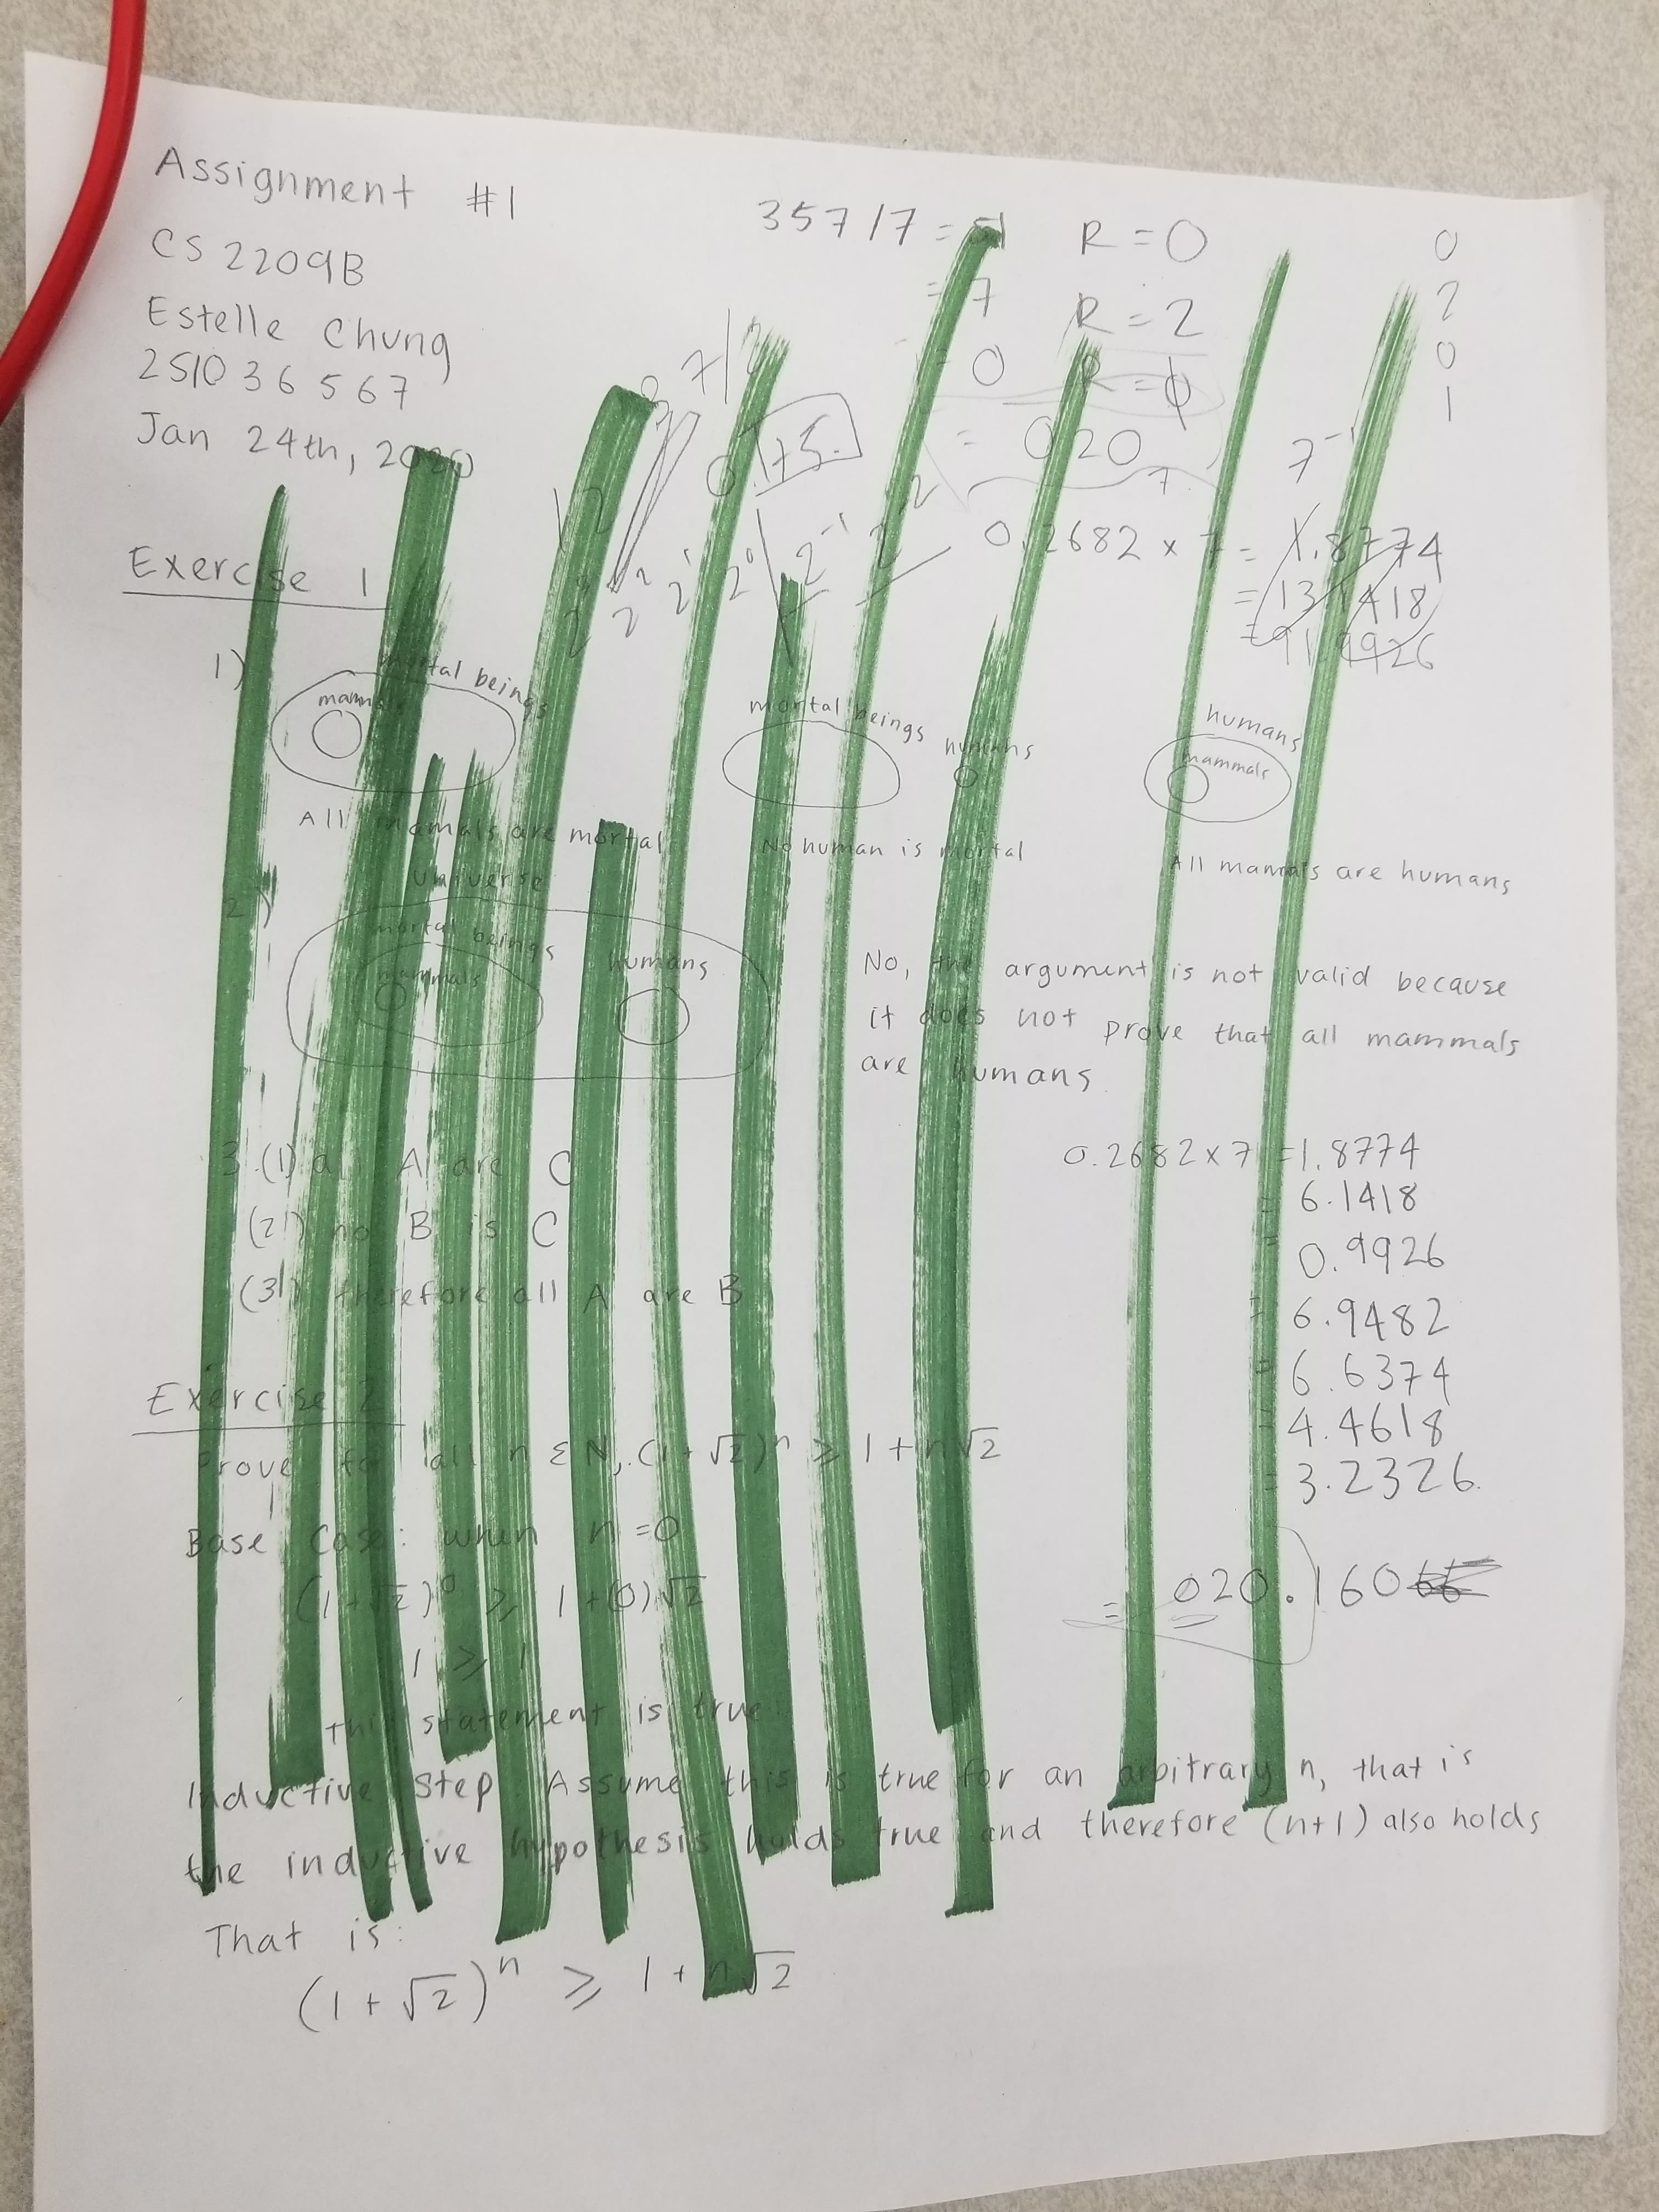 Assignment #1
CS 2209B
Estelle Chung
251036567
Jan 24th, 2020
357/7 = 51 R = 0
= 7 R = 2
= 0 R = 0
= 020
7
0
2
0
1
7⁻¹
0.175
2² 2¹ 2⁰ 2⁻¹ 2⁻²
0.2682 × 7 = 1.8774
= 13.1418
= 91.9926
Exercise 1
1)
mortal beings
mammals
All mamals are mortal
mortal beings
humans
No human is mortal
humans
mammals
All mamals are humans
2)
universe
mortal beings
mammals
humans
No, the argument is not valid because
it does not prove that all mammals
are humans
3.(1) all A are C
(2) no B is C
(3) therefore all A are B
0.2682 × 7 = 1.8774
= 6.1418
= 0.9926
= 6.9482
= 6.6374
= 4.4618
= 3.2326
= 020.160
Exercise 2
Prove for all n ε N, (1+√2)ⁿ ≥ 1+n√2
Base Case: when n=0
(1+√2)⁰ ≥ 1+(0)√2
1 ≥ 1
this statement is true.
Inductive Step: Assume this is true for an arbitrary n, that is
the inductive hypothesis holds true and therefore (n+1) also holds
That is:
(1+√2)ⁿ ≥ 1+n√2